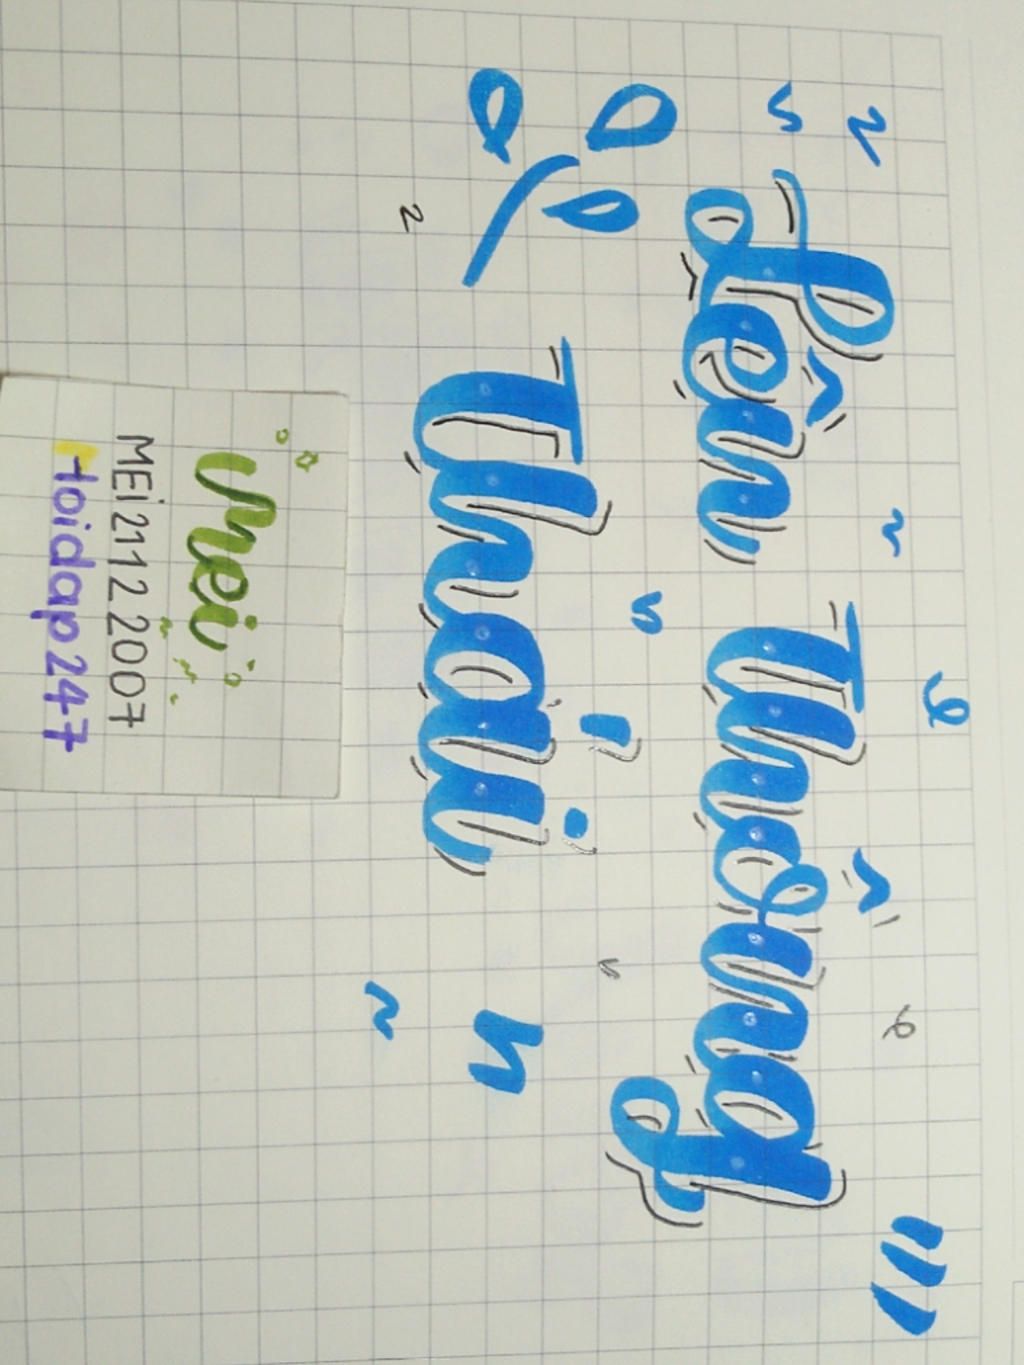 Lên Thông
Thái
mei
MEi 2112 2007
toidap247